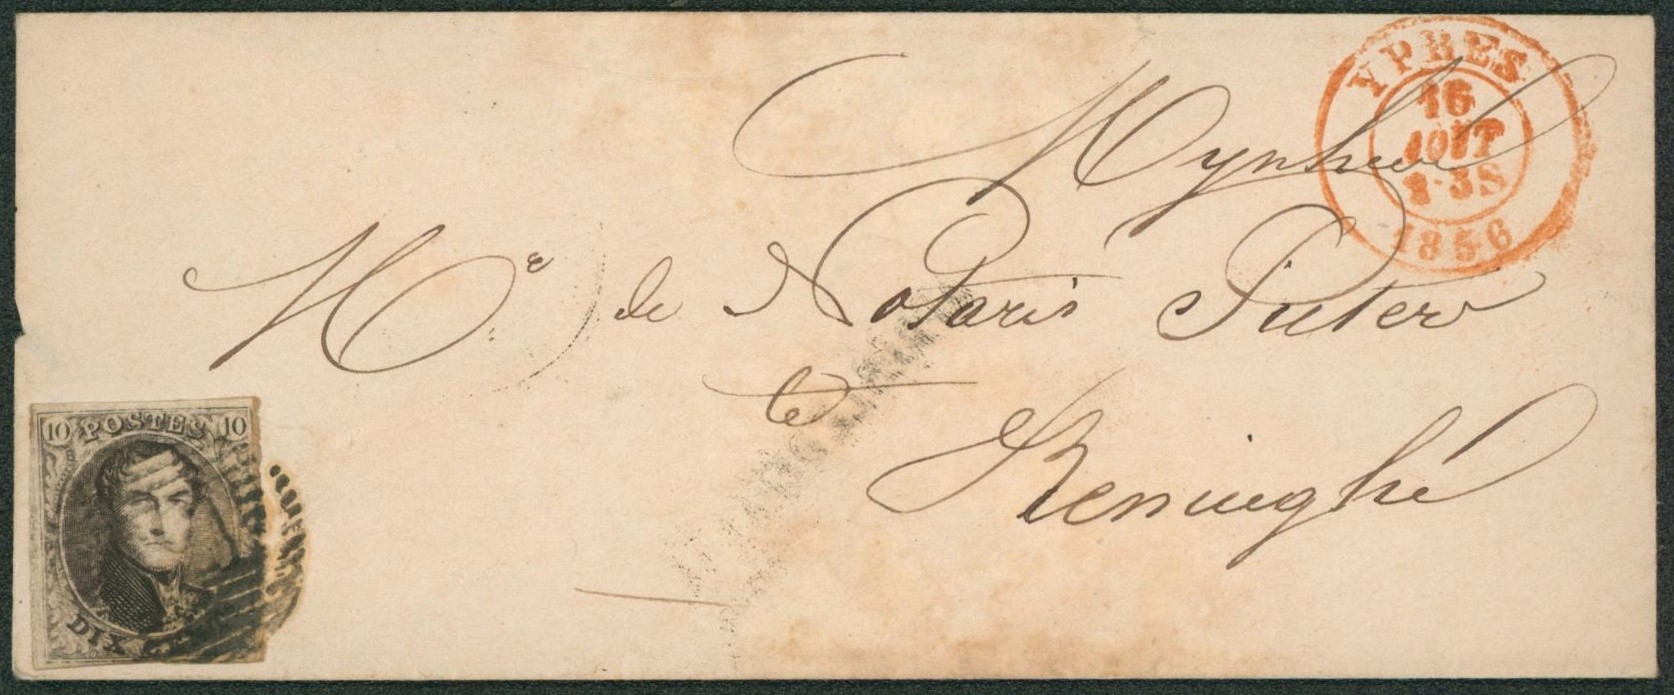 YPRES
16
AOUT
2-3S
1856
Mynheer
Me de Notaris Pieters
te
Reninghe
10 POSTES 10
DIX